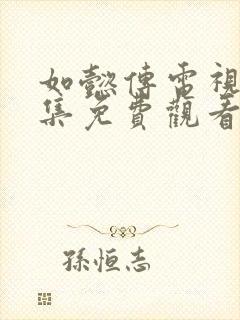 如懿傳電視
集免費觀看
孫恒志